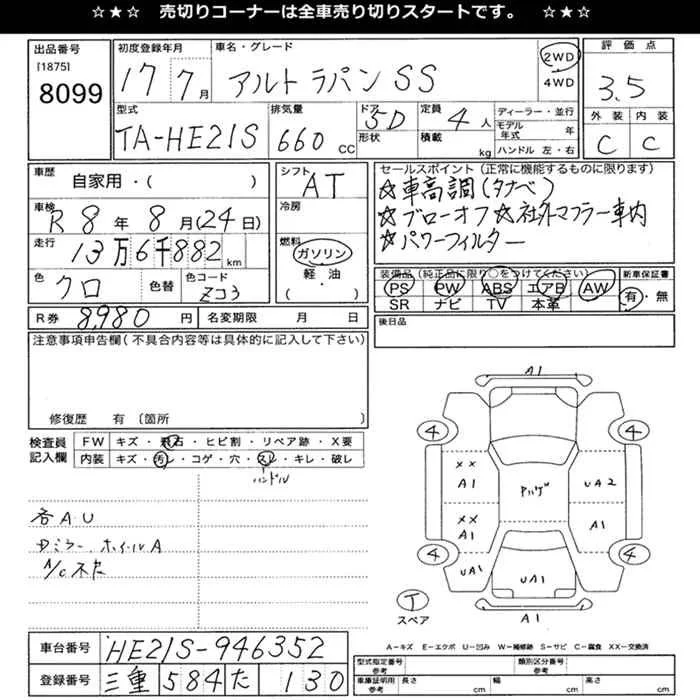 ☆★☆ 売切りコーナーは全車売り切りスタートです。 ☆★☆
出品番号 [1875] 8099
初度登録年月 17 7月
車名・グレード アルトラパンSS
2WD 4WD
評価点 3.5
型式 TA-HE21S
排気量 660 CC
ドア形状 5D
定員 4人
積載 kg
ディーラー・並行
モデル年式 年
ハンドル 左・右
外装 内装
C C
車歴 自家用・( )
シフト AT
車検 R8年8月(24日)
冷房
走行 13万6千882km
燃料 ガソリン 軽・油 ( )
色 クロ 色替 色コード ZJ3
セールスポイント(正常に機能するものに限ります)
☆車高調(タナベ)
☆ブローオフ☆社外マフラー車内
☆パワーフィルター
装備品(純正品に限り○をつけてください) 新車保証書
PS PW ABS エアB AW 有・無
SR ナビ TV 本革
R券 8,980円 名変期限 月 日
後日品
注意事項申告欄(不具合内容等は具体的に記入して下さい)
修復歴 有〔箇所
検査員記入欄
FW キズ・飛石・ヒビ割・リペア跡・X要
内装 キズ・汚レ・コゲ・穴・スレ・キレ・破レ
ハンドル
各A.U
ドミラー、ホイールA
A/C不良
A1
4 4
XX A1 Pハゲ UA2
XX A1 A1
4 4
UA1 UA1 A1
T スペア
A1
A-キズ E-エクボ U-凹み W-補修跡 S-サビ C-腐食 XX-交換済
車台番号 HE21S-946352
登録番号 三重 584 た 130
型式指定番号 参考 類別区分番号 参考
車庫証明用 参考 長さ cm 幅 cm 高さ cm